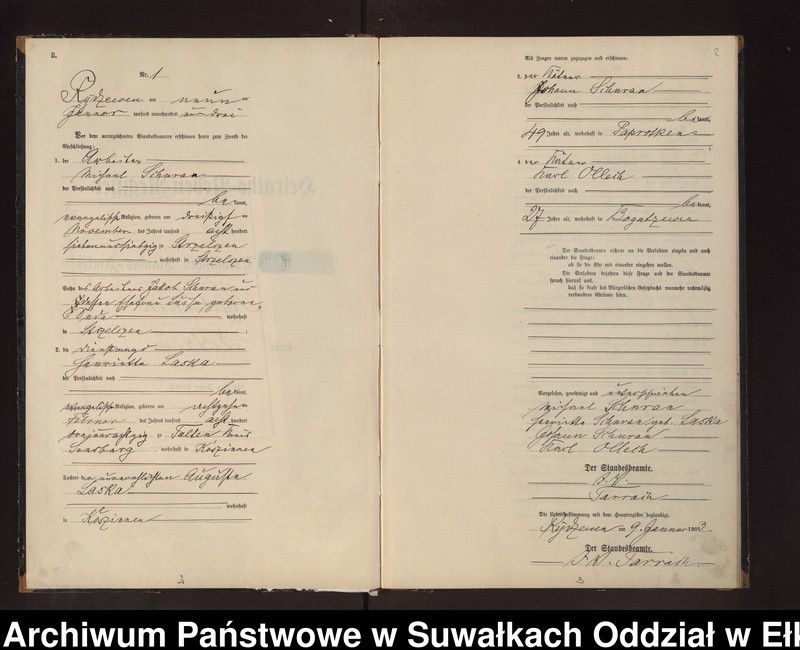 B.
Nr. 1
Rydzewen am neun-
Januar tausend neunhundert und drei
Vor dem unterzeichneten Standesbeamten erschienen heute zum Zwecke der
Eheschließung:
1. der Arbeiter
Michael Schuran
der Persönlichkeit nach
be kannt,
evangelischer Religion, geboren am dreißigsten
November des Jahres tausend acht hundert
siebenundsiebzig zu Strzelzen
, wohnhaft in Strzelzen
Sohn des Arbeiters Jakob Schuran und
dessen Ehefrau Luise, geborene
wohnhaft
in Strzelzen ;
2. die Dienstmagd
Henriette Laska
der Persönlichkeit nach
be kannt,
evangelischer Religion, geboren am
Februar des Jahres tausend acht hundert
dreiundachtzig zu Talten Kreis
Sensburg, wohnhaft in Koszinnen
Tochter der unverehelichten Auguste
Laska
wohnhaft
in Koszinnen
2
2
Als Zeugen waren zugezogen und erschienen:
3. der Kätner
Johann Schuran
der Persönlichkeit nach
be kannt,
49 Jahre alt, wohnhaft in Paprodtken
;
4. der Kätner
Karl Olleck
der Persönlichkeit nach
be kannt,
27 Jahre alt, wohnhaft in Bogatzewen
Der Standesbeamte richtete an die Verlobten einzeln und nach
einander die Frage:
ob sie die Ehe mit einander eingehen wollen.
Die Verlobten bejahten diese Frage und der Standesbeamte
sprach hierauf aus,
daß sie kraft des Bürgerlichen Gesetzbuchs nunmehr rechtmäßig
verbundene Eheleute seien.
Vorgelesen, genehmigt und unterschrieben
Michael Schuran
Henriette Schuran geb. Laska
Johann Schuran
Karl Olleck
Der Standesbeamte.
J. V.
Tarrach
Die Uebereinstimmung mit dem Hauptregister beglaubigt.
Rydzewen am 9. Januar 1903
Der Standesbeamte.
J. V. Tarrach
3
Archiwum Państwowe w Suwałkach Oddział w Ełk